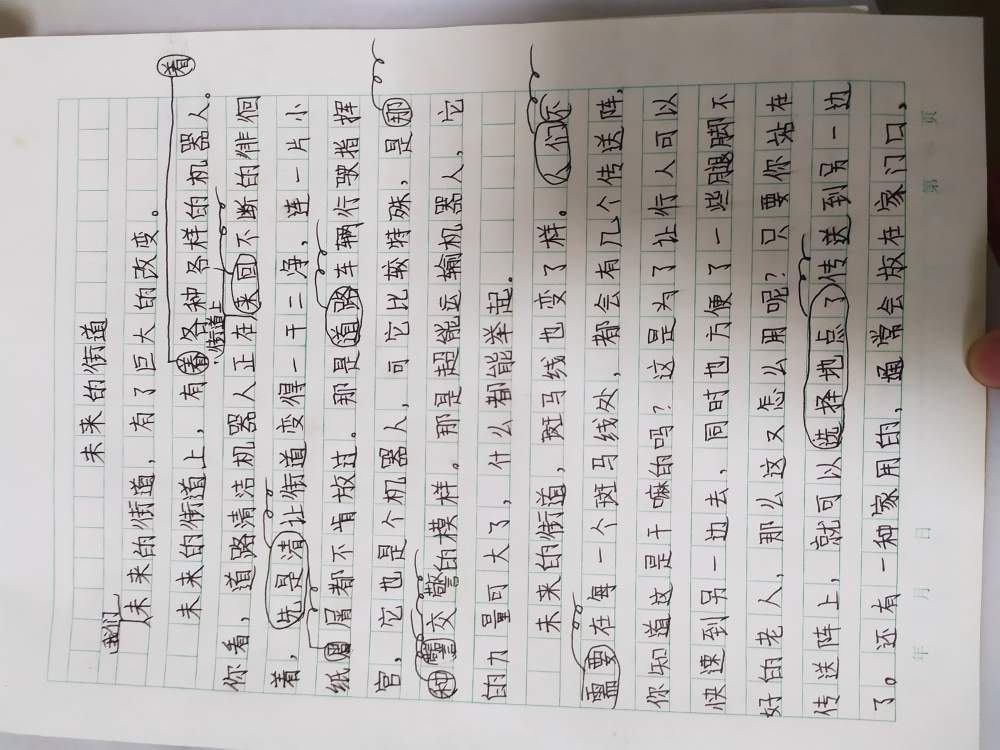 未来的街道
我们
未来的街道，有了巨大的改变。
着
未来的街道上，有着各种各样的机器人。
街道上
你看，道路清洁机器人正在来回不断的徘徊
着，先是清让街道变得一干二净，连一片小
纸屑都不肯放过。那是道路车辆行驶指挥
官，它也是个机器人，可它比较特殊，是那
种警交警的模样。那是超能运输机器人，它
的力量可大了，什么都能举起。
未来的街道，斑马线也变了样。人们不
需要在每一个斑马线处，都会有几个传送阵，
你知道这是干嘛的吗？这是为了让行人可以
快速到另一边去，同时也方便了一些腿脚不
好的老人，那么这又怎么用呢？只要你站在
传送阵上，就可以选择地点了传送到另一边
了。还有一种家用的，通常会放在家门口，
年 月 日 第 页